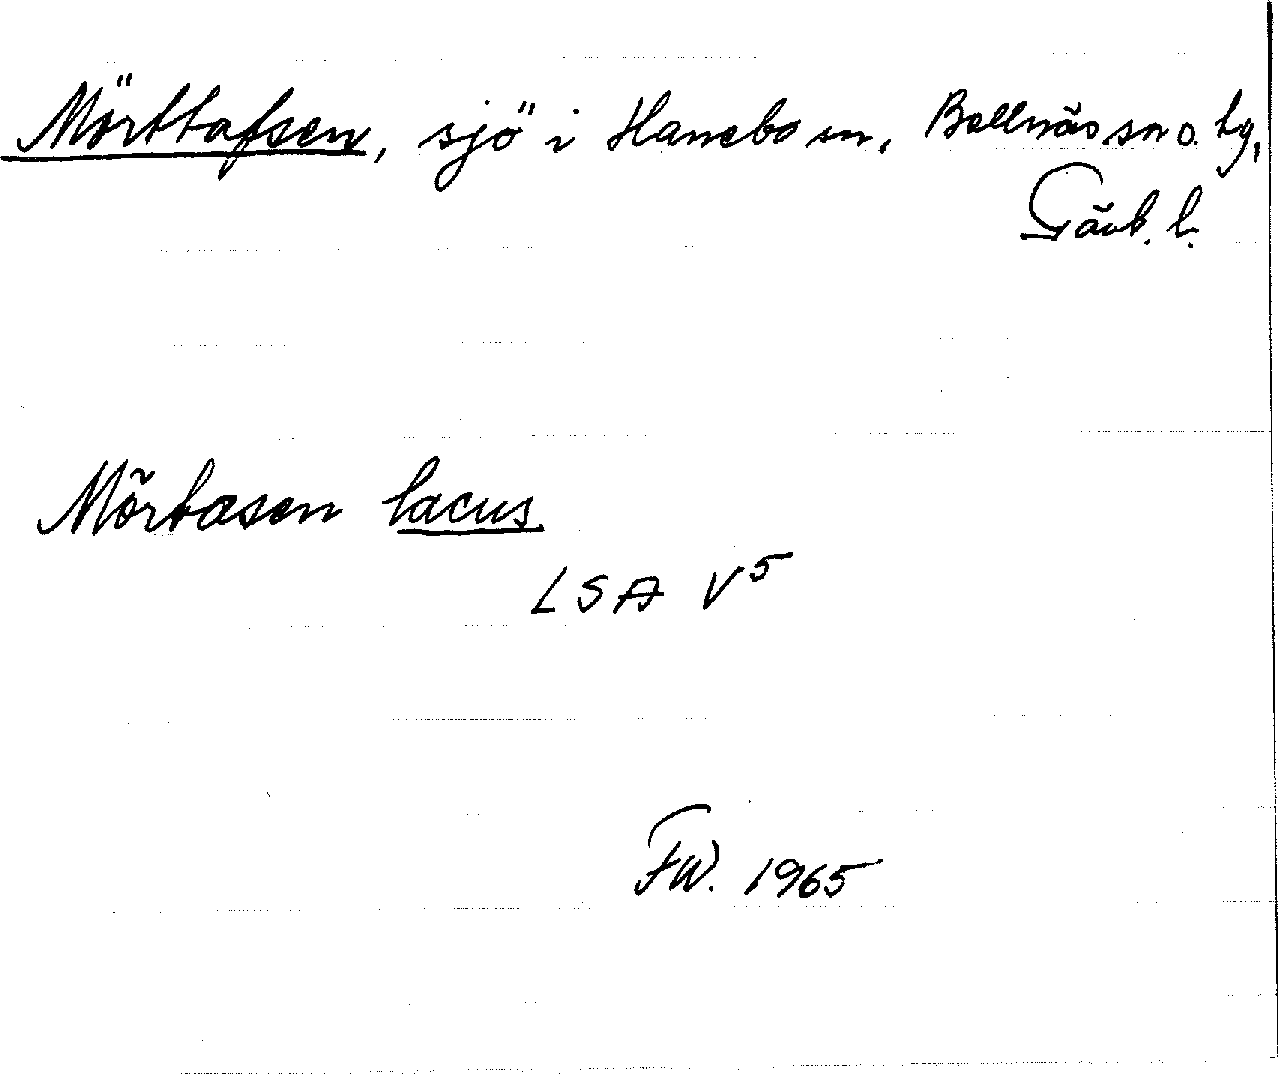 Mörttafsen, sjö i Hanebo sn, Bollnäs sn o. tg,
Gävb. l.
Mörtasen lacus
LSA V5
FW. 1965